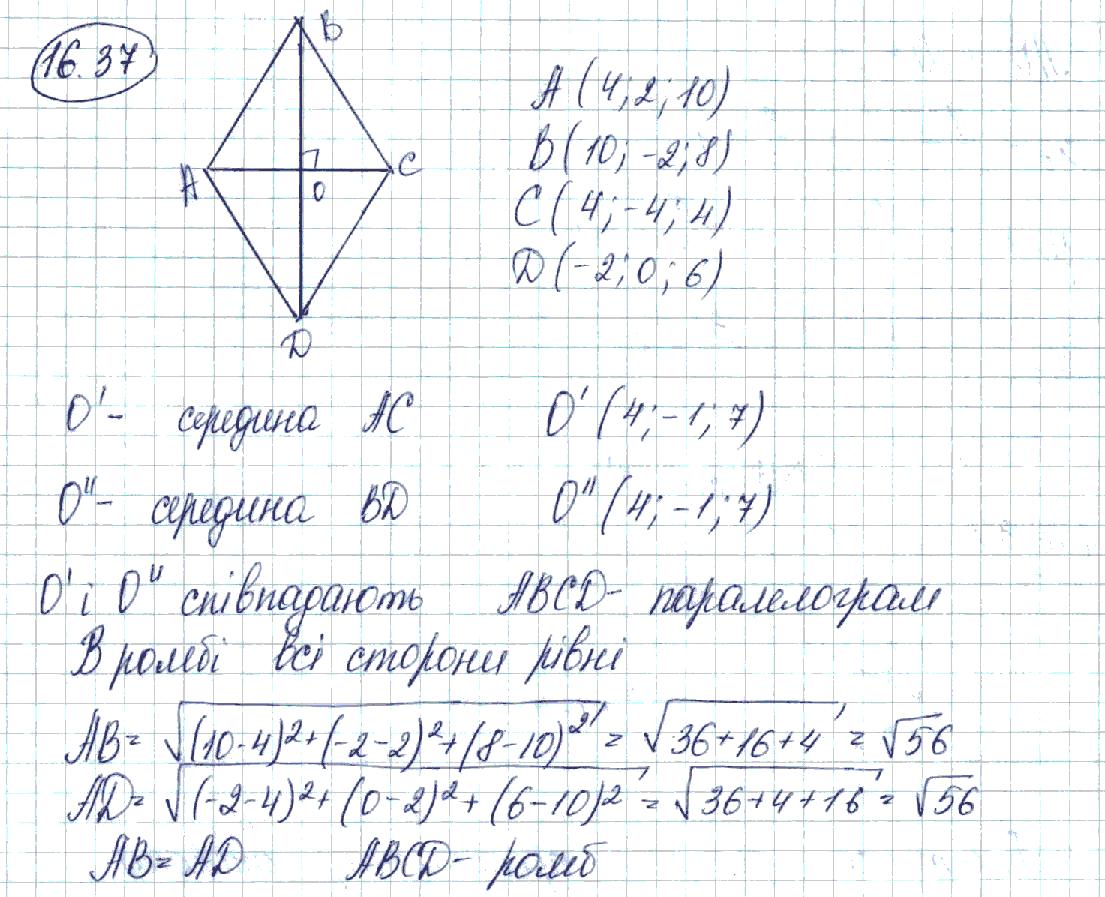 16.37
B
A
C
O
D
A (4; 2; 10)
B (10; -2; 8)
C (4; -4; 4)
D (-2; 0; 6)
O' - середина AC O' (4; -1; 7)
O'' - середина BD O'' (4; -1; 7)
O' і O'' співпадають ABCD - паралелограм
В ромбі всі сторони рівні
AB = √(10-4)² + (-2-2)² + (8-10)² = √36+16+4 = √56
AD = √(-2-4)² + (0-2)² + (6-10)² = √36+4+16 = √56
AB = AD ABCD - ромб